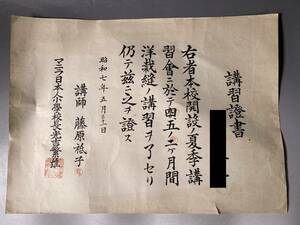 講習證書
右者本校開設ノ夏季講
習會ニ於テ四五ノ二ケ月間
洋裁縫ノ講習ヲ了セリ
仍テ玆ニ之ヲ證ス
昭和七年五月三十一日
講師 藤原
子
マニラ日本人小學校長